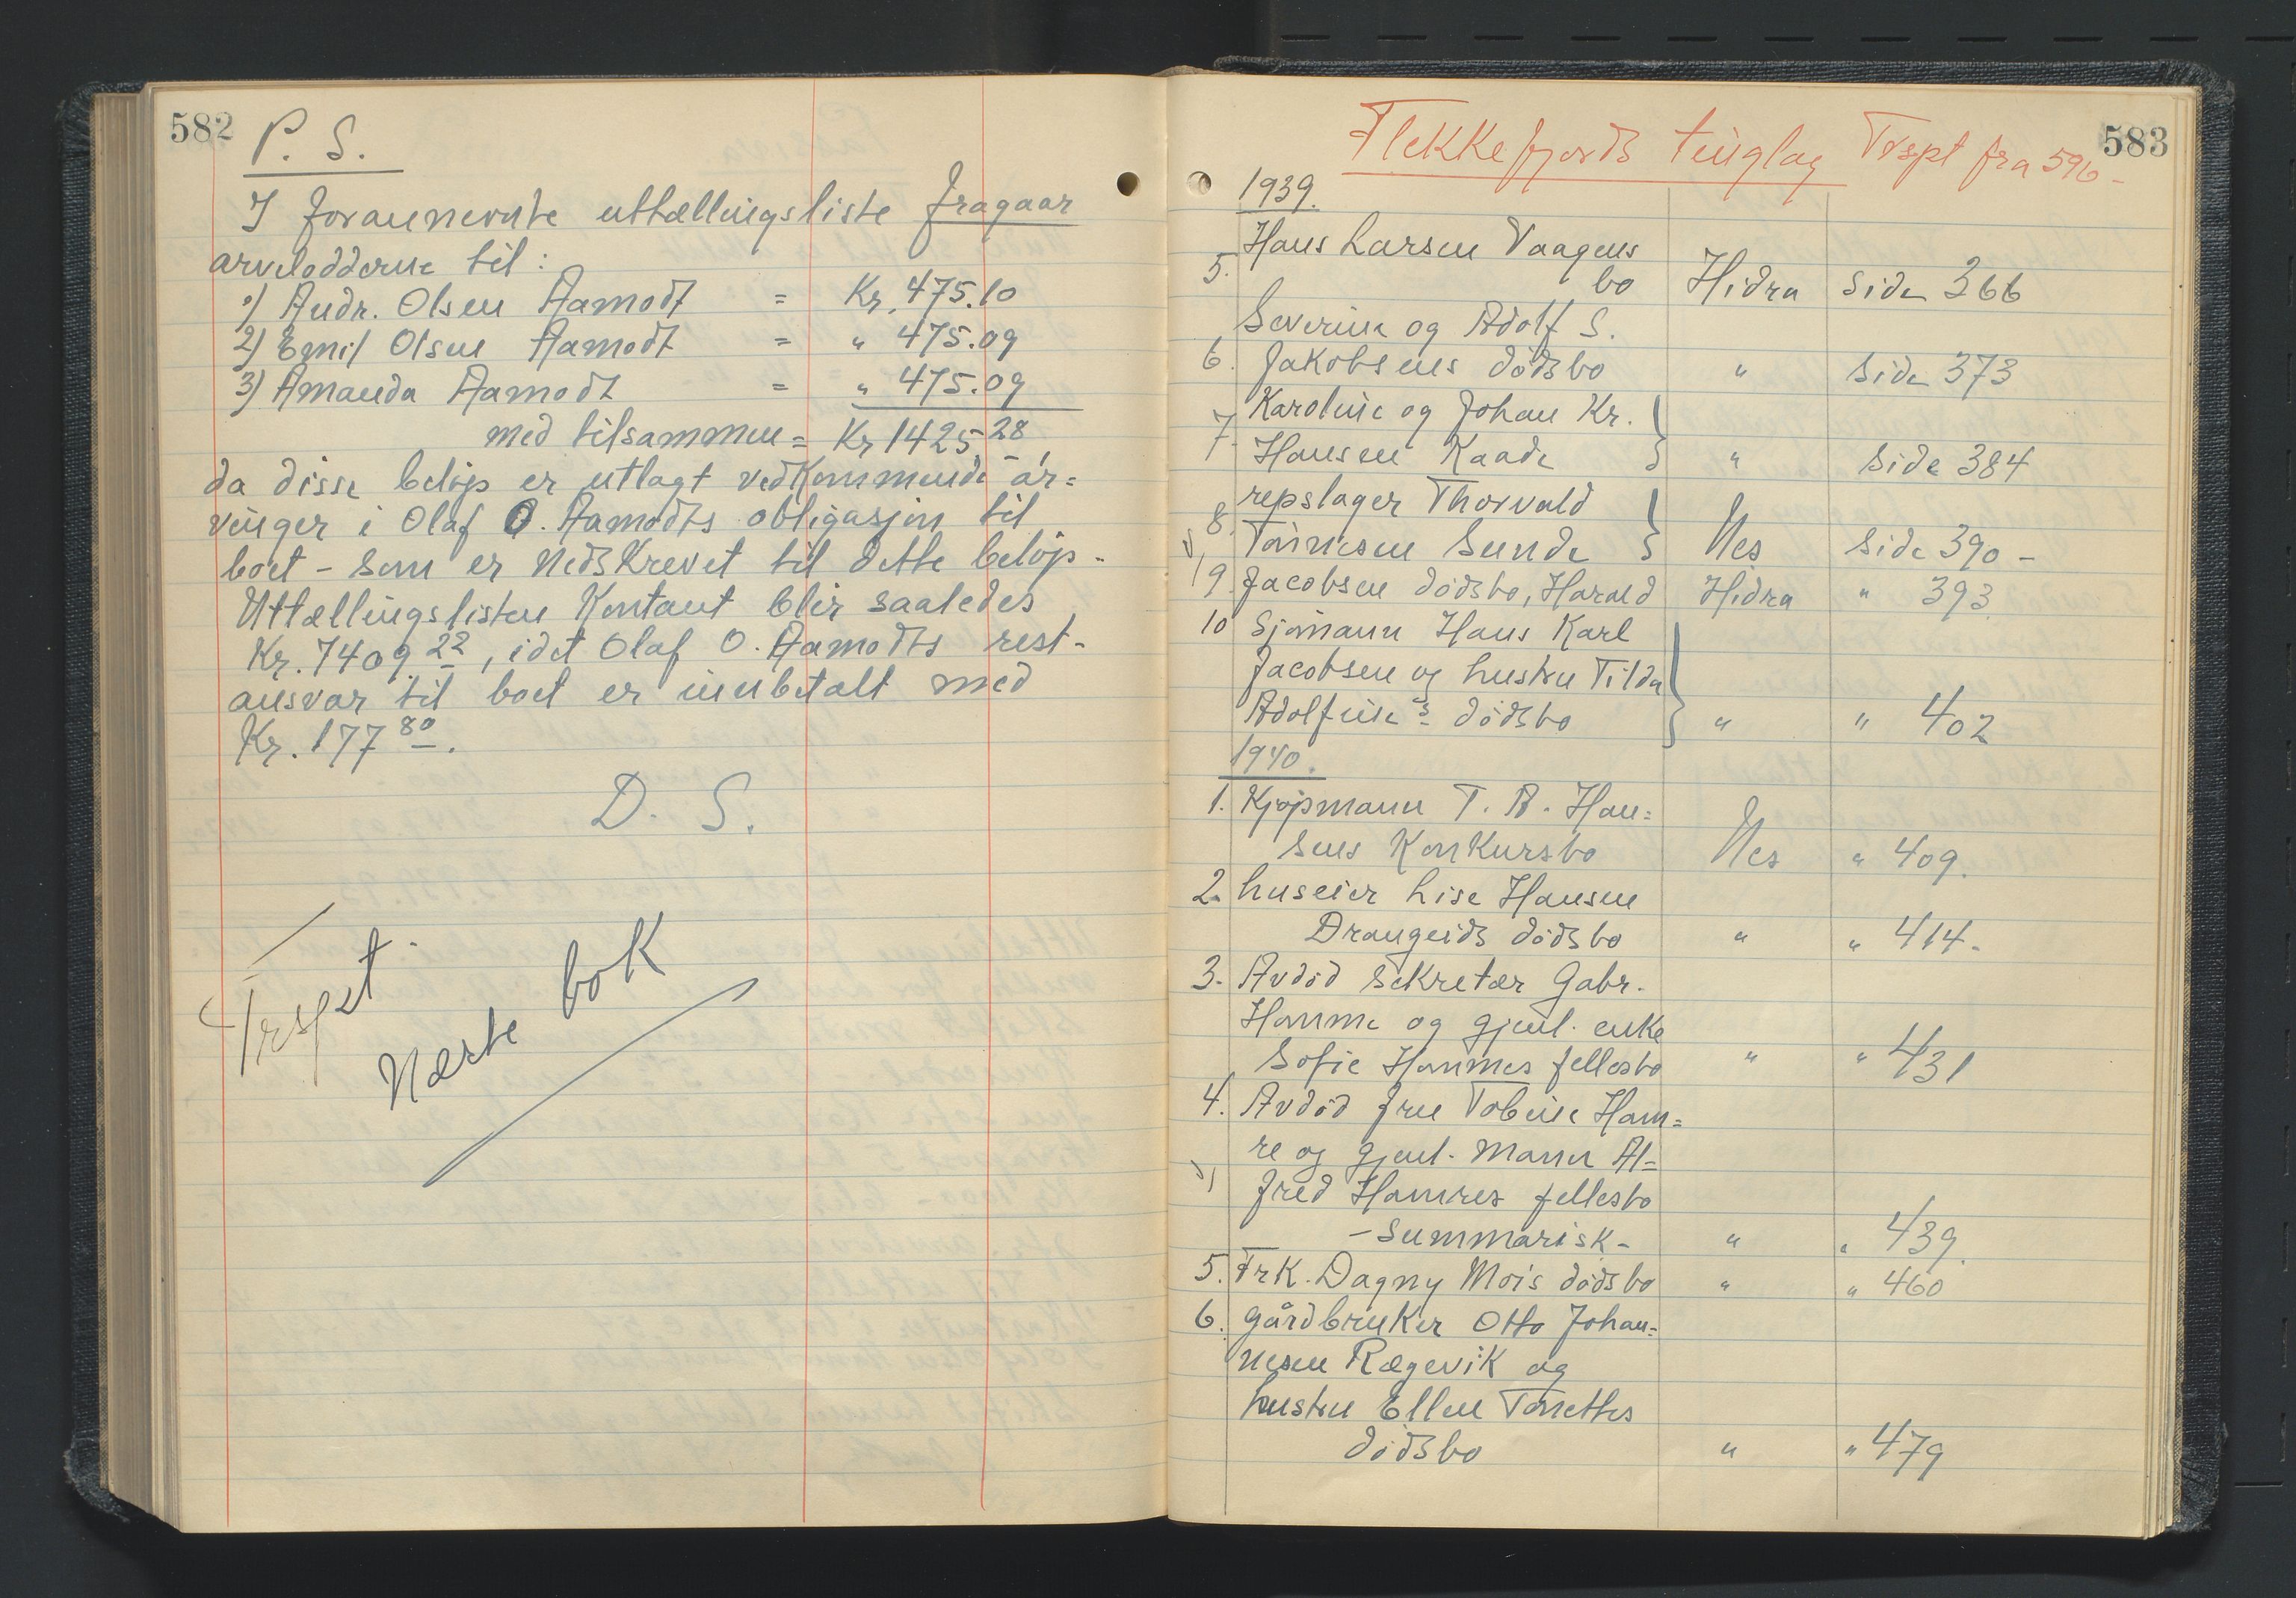 582
P. S.
I forannevnte uttællingsliste fragaar
arvelodderne til:
1) Andr. Olsen Aamodt = Kr. 475.10
2) Emil Olsen Aamodt = " 475.09
3) Amanda Aamodt = " 475.09
med tilsammen = Kr 1425.28,
da disse beløp er utlagt vedkommende ar=
vinger i Olaf O. Aamodts obligasjon til
boet - som er nedskrevet til dette beløp -
Uttællingslisten Kontant blir saaledes
Kr. 7409.22, idet Olaf O. Aamodts rest-
ansvar til boet er innbetalt med
Kr. 177 80.
D. S.
Trspt.
Næste bok
583
Flekkefjords tinglag Trspt fra 596 -
1939.
Hans Larsen Vaagens
5. bo Hidra Side 366
Severine og Adolf S.
6. Jakobsens dødsbo " Side 373
Karoline og Johan Kr.
7. Hansen Kaade " Side 384
repslager Thorvald
8. Tønnesen Sunde Nes Side 390 -
9. Jacobsen dødsbo, Harald Hidra " 393
10 Sjømann Hans Karl
Jacobsen og hustru Tilda
Adolfine's dødsbo " " 402
1940.
1. Kjøpmann T. B. Han=
sens Konkursbo Nes " 409.
2. huseier Lise Hansen
Drangeids dødsbo " " 414.
3. Avdød sekretær Gabr.
Homme og gjenl. enke
Sofie Hommes fellesbo " " 431
4. Avdød fru Tobine Ham=
re og gjenl. mann Al=
fred Hamres fellesbo
- Summarisk - " " 439.
5. Frk. Dagny Moi's dødsbo " " 460
6. gårdbruker Otto Johan=
nesen Rægevik og
hustru Ellen Tonettes
dødsbo " " 479